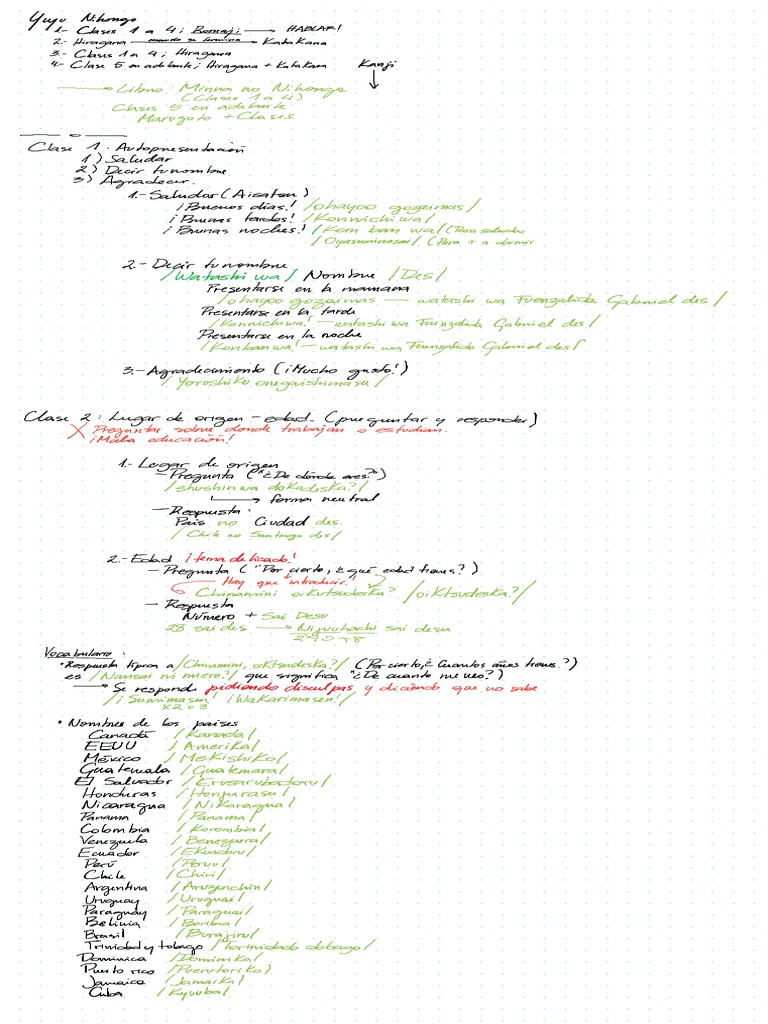 Yuyu Nihongo
1.- Clases 1 a 4; Romaji → HABLAR!
2.- Hiragana cuando se termina → Katakana
3.- Clases 1 a 4; Hiragana
4.- Clase 5 en adelante; Hiragana + Katakana Kanji
→ Libro: Minna no Nihongo
(Clases 1 a 4)
Clases 5 en adelante
Marugoto + Clases
Clase 1: Autopresentación
1) Saludar
2) Decir tu nombre
3) Agradecer.
1.- Saludar (Aisatsu)
¡Buenos días! /ohayoo gozaimas/
¡Buenas tardes! /Konnichi wa/
¡Buenas noches! /Kom ban wa/ (Para saludar
/Oyasuminasai/ (Para ir a dormir
2.- Decir tu nombre
/Watashi wa/ Nombre /Des/
Presentarse en la mannana
/ohayoo gozaimas — watashi wa Fuenzalida Gabriel des/
Presentarse en la tarde
/Konnichiwa! — watashi wa Fuenzalida Gabriel des/
Presentarse en la noche
/Konbanwa! — watashi wa Fuenzalida Gabriel des/
3.- Agradecimiento (¡Mucho gusto!)
/Yoroshiku onegaishimasu/
Clase 2: Lugar de origen - edad. (preguntar y responder)
X Preguntar sobre donde trabajan o estudian.
¡Mala educación!
1.- Lugar de origen
- Pregunta ("¿De dónde eres?")
/shushin wa dokodeska?/
→ forma neutral
- Respuesta:
País no Ciudad des.
/Chile no Santiago des/
2.- Edad ¡tema delicado!
- Pregunta ("Por cierto, ¿qué edad tienes?)
Hay que introducir!
Chinamini oikutsudeska? /oiktsudeska?/
- Respuesta
Número + Sai Desu
28 sai des → Nijuuhachi sai desu
2*10+8
Vocabulario:
• Respuesta tipica a /Chinamini, oiktsudeska?/ (Por cierto, ¿Cuantos años tienes?)
es /Nansai ni miero?/ que significa "¿De cuanto me veo?)
→ Se respondi pidiendo disculpas y diciendo que no sabe
/¡Sumimasen! ¡Wakarimasen!/
• Nombres de los países
Canadá /Kanada/
EEUU /Amerika/
México /Mekishiko/
Guatemala /Guatemara/
El Salvador /Erusarubadoru/
Honduras /Honjurasu/
Nicaragua /Nikaragua/
Panama /Panama/
Colombia /Korombia/
Venezuela /Benesuera/
Ecuador /Ekuadoru/
Perú /Peruu/
Chile /Chiri/
Argentina /Aruzenchin/
Uruguay /Uruguai/
Paraguay /Paraguai/
Belivia /Boribia/
Brasil /Burajiru/
Trinidad y tobago /Torinidado dobago/
Dominica /Dominika/
Puerto rico /Puerutoriko)
Jamaica /Jamaika/
Cuba /Kyuuba/